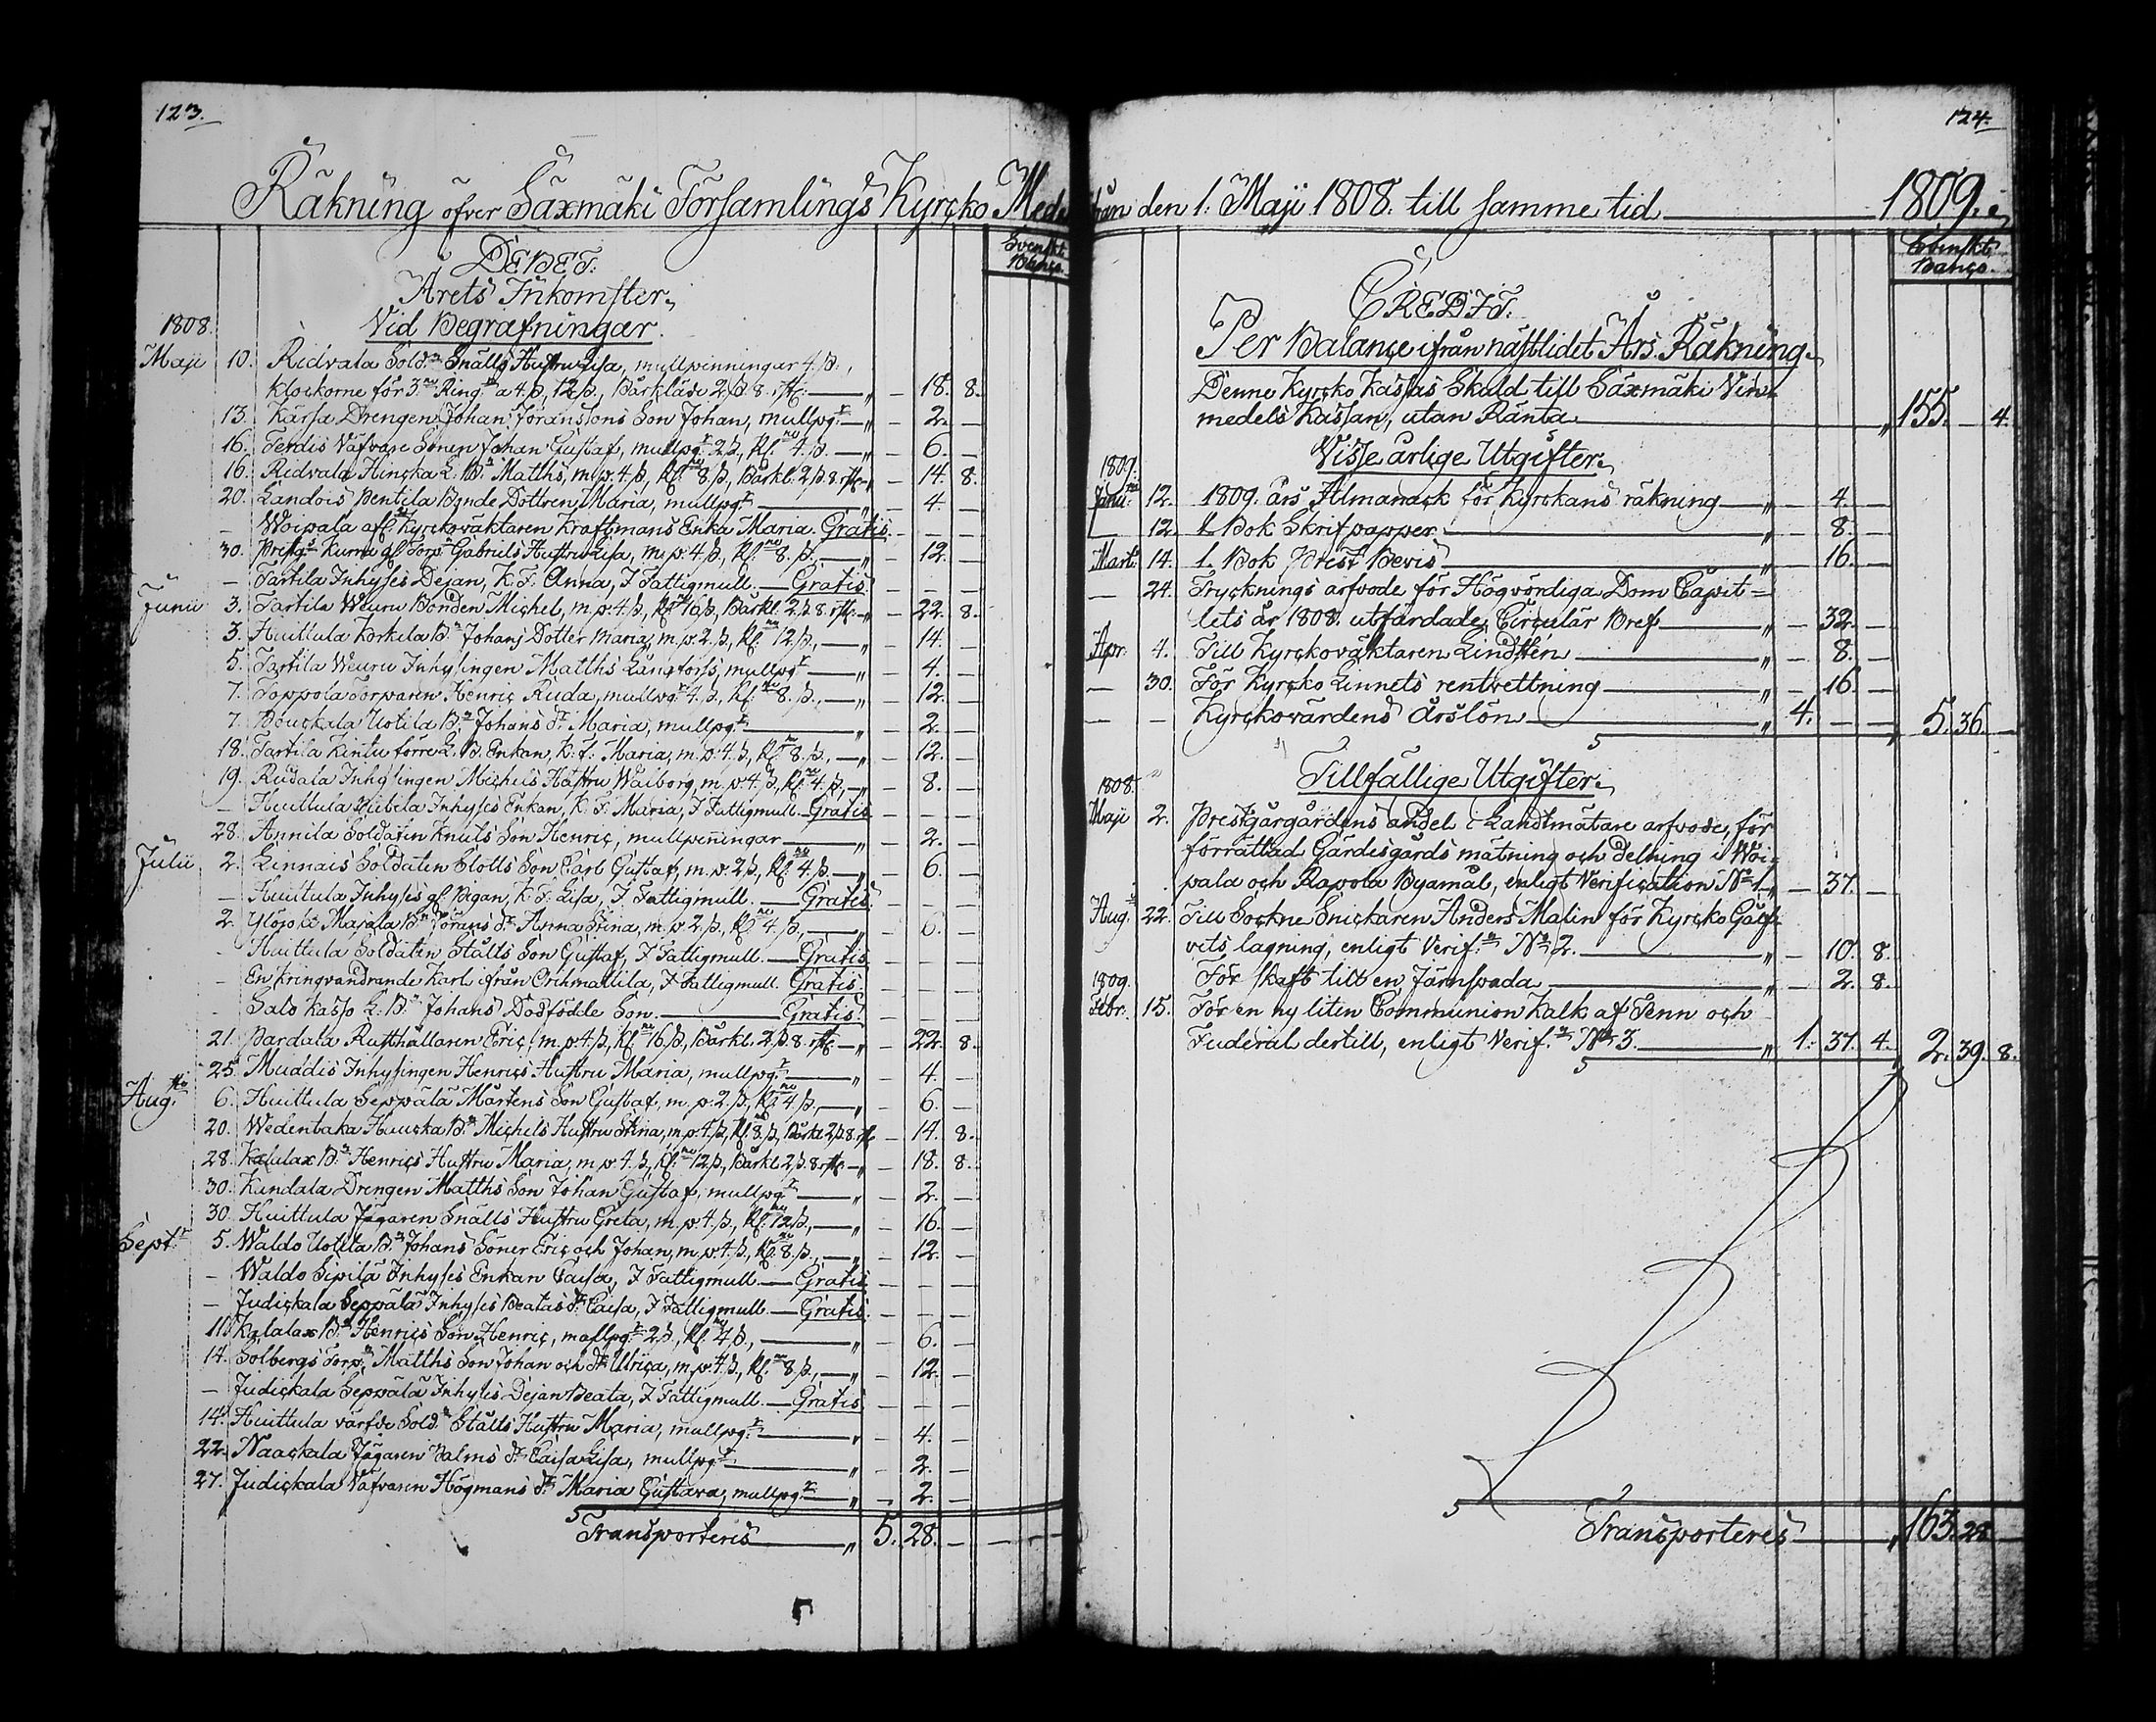 123.
Räkning öfver Säxmäki Församlings Kyrcko Mede
Svenskt
Banço.
DEBET.
Årets Inkomster.
1808.
Vid Begrafningar.
Maji 10. Ridvala Sold:n Snälls Hustru Lisa, mullpenningar 4.ß.,
Klockorne för 3:ne Ring:r a 4.ß, 12ß., Bårkläde 2.ß.8.rst. — „ — 18. 8.
13. Kärsa Drengen Johan Göranssons Son Johan, mullpg:r — „ — 2. —
16. Terdis Väfvare Sonen Johan Gustaf, mullpg:r 2.ß., Kl:ne 4.ß. — „ — 6. —
16. Ridvala Hincka L. B:n Matths, m.p.4.ß, Kl:ne 8.ß, Bårkl. 2.ß.8.rst. „ — 14. 8.
20. Landois Pentila Bonde Dottren Maria, mullpg:r — „ — 4. —
— Woipala afl. Kyrckováktaren Kraftmans Enka Maria. Gratis. — — —
30. Prestg:s Kurra gl. Torp:n Gabriels Hustru Lisa, m.p.4.ß, Kl:ne 8.ß. — „ — 12. —
— Tarttila Inhyses Dejan, K.F. Anna, I Fattigmull. — Gratis. — — —
Junii 3. Tarttila Weuru Bonden Michel, m.p.4.ß, Kl:ne 16.ß, Bårkl. 2.ß.8.rst. „ — 22. 8.
3. Huittula Korkela B:n Johans Dotter Maria, m.p.2.ß, Kl:ne 12.ß., — „ — 14. —
5. Tarttila Weuru Inhysingen Matths Långfors, mullpg:r — „ — 4. —
7. Toppola Torparen Henriç Ruda, mullpg:r 4.ß, Kl:ne 8.ß., — „ — 12. —
7. Bouckala Uotila B:n Johans d:r Maria, mullpg:r — „ — 2. —
18. Tarttila Kintu förre L. B. Enkan, K.F. Maria, m.p.4.ß, Kl:ne 8.ß., — „ — 12. —
19. Rudala Inhysingen Michels Hustru Walborg, m.p.4.ß, Kl:ne 4.ß, — „ — 8. —
— Huittula Inhyses Enkan, K.F. Maria, I Fattigmull. Gratis — — —
28. Annila Soldaten Knuts Son Henriç, mullpeningar — „ — 2. —
Julii 2. Linnais Soldaten Slotts Son Carl Gustaf, m.p.2.ß, Kl:ne 4.ß. — „ — 6. —
— Huittula Inhyses gl. Pigan, K.F. Lisa, I Fattigmull. — Gratis. — — —
2. Ylöjoki Majala B:n Görans d:r Anna Stina, m.p.2.ß, Kl:ne 4.ß., — „ — 6. —
— Huittula Soldaten Ståhls Son Gustaf, I Fattigmull. — Gratis — — —
— En kringvandrande Karl ifrån Orihmattila, I Fattigmull. Gratis. — — —
— Salo Kasso L. B:n Johans Dödfödde Son. — Gratis. — — —
21. Pardala Rusthållaren Eric, m.p.4.ß, Kl:ne 16.ß, Bårkl. 2.ß.8.rst. — „ — 22. 8.
25. Muddis Inhysingen Henrics Hustru Maria, mullpg:r — „ — 4. —
Aug:ti 6. Huittula Seppälä Mårtens Son Gustaf, m.p.2.ß, Kl:ne 4.ß., — „ — 6. —
20. Wedentaka Huucka B:n Michels Hustru Stina, m.p.4.ß, Kl:ne 8.ß, Bårkl. 2.ß.8.rst. — 14. 8.
28. Kalalax B:n Henrics Hustru Maria, m.p.4.ß, Kl:ne 12.ß, Bårkl. 2.ß.8.rst. — „ — 18. 8.
30. Kandala Drengen Matths Son Johan Gustaf, mullpg:r — „ — 2. —
30. Huittula Jägaren Snälls Hustru Greta, m.p.4.ß., Kl:ne 12.ß, — „ — 16. —
Sept:r 5. Waldo Uotila B:n Johans Söner Eric och Johan, m.p.4.ß., Kl:ne 8.ß., — „ — 12. —
— Waldo Sipilä Inhyses Enkan Caisa, I Fattigmull — Gratis — — —
— Judickala Seppälä Inhyses Beatas d:r Caisa, I Fattigmull. — Gratis. — — —
11. Kalalax B:n Henrics Son Henriç, mullpg:r 2.ß, Kl:ne 4.ß, — „ — 6. —
14. Solbergs Torp:n Matths Son Johan och d:r Ulrica, m.p.4.ß, Kl:ne 8.ß., — „ — 12. —
— Judickala Seppälä Inhyses Dejan Beata, I Fattigmull. — Gratis. — — —
14. Huittula värfde Sold:n Ståhls Hustru Maria, mullpg:r — „ — 4. —
22. Naackala Jägaren Palms d:r Caisa Lisa, mullpg:r — „ — 2. —
27. Judickala Väfvaren Högmans d:r Maria Gustava, mullpg:r — „ — 2. —
Transporteres — „ 5. 28. —
124.
från den 1. Maji 1808. till samme tid — 1809.
Svenskt
Banço.
CREDIT.
Per Balançe ifrån nästlidet Års Räkning.
Denne Kyrcko Kassas Skuld till Säxmäki Vin-
medels Kassan, utan Ränta — „ 155. — 4.
Visse årlige Utgifter.
1809.
Janu:rii 12. 1809. års Almanack för Kyrckans räkning — „ — 4. —
— 12. 1. Bok Skrifpapper — „ — 8. —
Marti 14. 1. Bok Prest Bevis — „ — 16. —
— 24. Trycknings arfvode för Högvördiga Dom Capit=
lets år 1808. utfärdade Circulär Bref — „ — 32. —
Apr. 4. Till Kyrckovåktaren Lindstén — „ — 8. —
— 30. För Kyrcko Linnets rentvettning — „ — 16. —
— — Kyrckovärdens Årslön — „ 4. — — 5. 36. —
Tillfällige Utgifter.
1808.
Maji 2. Prestgårgårdens andel i Landtmätare arfvode, för
förrättad Gärdesgårds mätning och delning i Woi-
pala och Rapola Byamål, enligt Verification N:o 1. „ — 37. —
Aug:ti 22. Till Sockne Snickaren Anders Malin för Kyrcko Gålf-
vets lagning, enligt Verif:n N:o 2. — „ — 10. 8.
1809. För skaft till en Järnspada — „ — 2. 8.
Febr. 15. För en ny liten Communion Kalk af Tenn och
Fuderal dertill, enligt Verif:n N:o 3. — „ 1. 37. 4. 2. 39. 8.
Transporteres — „ 163. 28 —